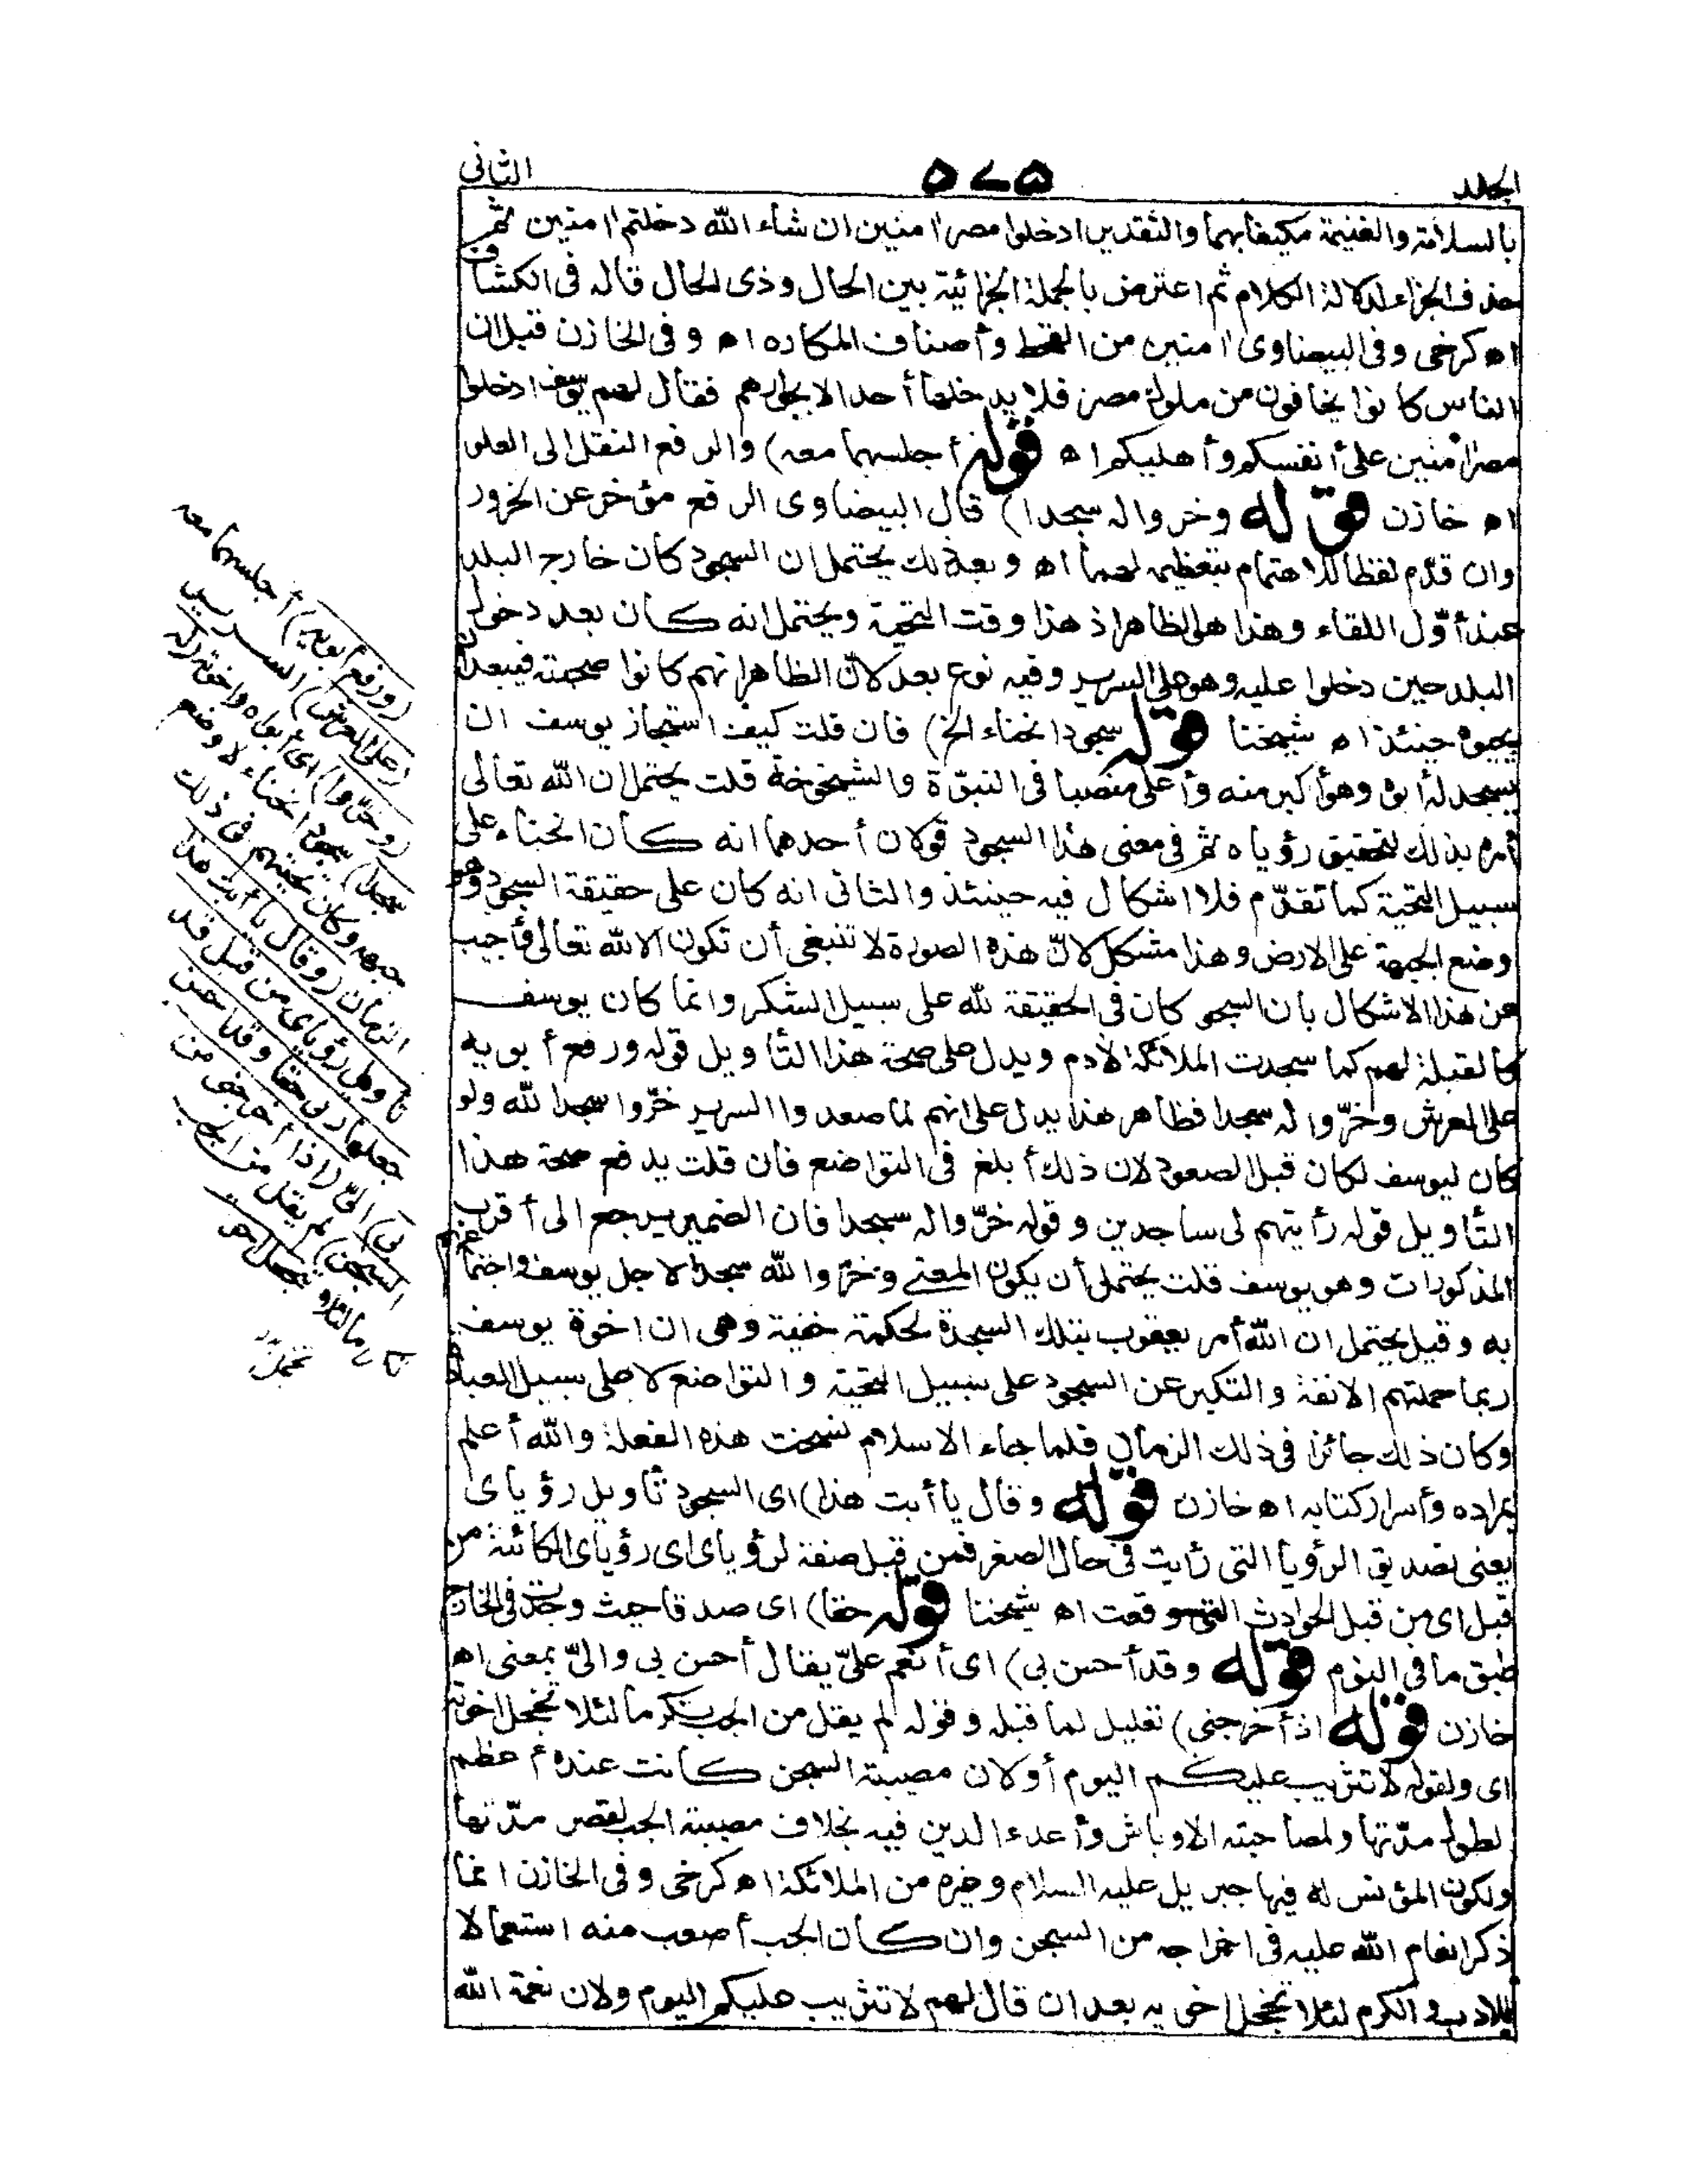 المجلد
٥٧٥
الثانى
بالسلامة والغنيمة مكيفا بهما والتقدير ادخلوا مصر امنين ان شاء الله دخلتم امنين ثم
حذف الجزاء لدلالة الكلام ثم اعترض بالجملة الجزائية بين الحال وذى الحال قاله فى الكشاف
اه كرخى وفى البيضاوى امنين من القحط وأصناف المكاره اه وفى الخازن قيل ان
الناس كانوا يخافون من ملوك مصر فلا يدخلها أحد الا بجوارهم فقال لهم يوسف ادخلوا
مصر امنين على أنفسكم وأهليكم اه قوله أجلسهما معه) والرفع النقل الى العلو
اه خازن قوله وخروا له سجدا) قال البيضاوى الرفع مؤخر عن الخرور
وان قدم لفظا للاهتمام بتعظيمه لهما اه وبعد ذلك يحتمل ان السجود كان خارج البلد
عند أوّل اللقاء وهذا هو الظاهر اذ هذا وقت التحية ويحتمل انه كان بعد دخول
البلد حين دخلوا عليه وهو على السرير وفيه نوع بعد لانّ الظاهر انهم كانوا صحبته فيبعد أن
يحيوه حينئذ اه شيخنا قوله سجود انحناء الخ) فان قلت كيف استجاز يوسف ان
يسجد له أبوه وهو أكبر منه وأعلى منصبا فى النبوّة والشيخوخة قلت يحتمل ان الله تعالى
أمره بذلك لتحقيق رؤياه ثم فى معنى هذا السجود قولان أحدهما انه كان انحناء على
سبيل التحية كما تقدّم فلا اشكال فيه حينئذ والثانى انه كان على حقيقة السجود وهو
وضع الجبهة على الارض وهذا مشكل لانّ هذه الصورة لا تنبغى أن تكون الا لله تعالى فأجيب
عن هذا الاشكال بأن السجود كان فى الحقيقة لله على سبيل الشكر وانما كان يوسف
كالقبلة لهم كما سجدت الملائكة لآدم ويدل على صحة هذا التأويل قوله ورفع أبويه
على العرش وخرّوا له سجدا فظاهر هذا يدل على انهم لما صعدوا السرير خرّوا سجدا لله ولو
كان ليوسف لكان قبل الصعود لان ذلك أبلغ فى التواضع فان قلت يدفع صحة هذا
التأويل قوله رأيتهم لى ساجدين وقوله خرّوا له سجدا فان الضمير يرجع الى أقرب
المذكورات وهو يوسف قلت يحتمل أن يكون المعنى وخرّوا لله سجدا لاجل يوسف واجتماعهم
به وقيل يحتمل ان الله أمر يعقوب بتلك السجدة لحكمة خفية وهى ان اخوة يوسف
ربما حملتهم الانفة والتكبر عن السجود على سبيل التحية والتواضع لا على سبيل العبادة
وكان ذلك جائزا فى ذلك الزمان فلما جاء الاسلام نسخت هذه الفعلة والله أعلم
بمراده وأسرار كتابه اه خازن قوله وقال يا أبت هذا) اى السجود تأويل رؤياى
يعنى تصديق الرؤيا التى رأيت فى حال الصغر فمن قبل صفة لرؤياى اى رؤياى الكائنة من
قبل اى من قبل الحوادث التى وقعت اه شيخنا قوله حقا) اى صدقا حيث وجدت فى الخارج
طبق ما فى النوم قوله وقد أحسن بى) اى أنعم علىّ يقال أحسن بى والىّ بمعنى اه
خازن قوله اذ أخرجنى) تعليل لما قبله وقوله لم يقل من الجب تكرما لئلا تخجل اخوته
اى ولقوله لا تثريب عليكم اليوم أو لان مصيبة السجن كانت عنده أعظم
لطول مدّتها ولمصاحبته الاوباش وأعداء الدين فيه بخلاف مصيبة الجب لقصر مدّتها
ولكون المؤنس له فيها جبريل عليه السلام وغيره من الملائكة اه كرخى وفى الخازن انما
ذكر انعام الله عليه فى اخراجه من السجن وان كان الجب أصعب منه استعمالا
للادب والكرم لئلا تخجل اخوته بعد ان قال لهم لا تثريب عليكم اليوم ولان نعمة الله
(ورفع أبويه) أجلسهما معه
(على العرش) السرير
(وخرّوا) اى أبواه واخوته (له
سجدا) سجود انحناء لا وضع
جبهة وكان تحيتهم فى ذلك
الزمان (وقال يا أبت هذا
تأويل رؤياى من قبل قد
جعلها ربى حقا وقد أحسن
بى) الىّ (اذ أخرجنى من
السجن) لم يقل من الجب
تكرما لئلا يخجل اخوته